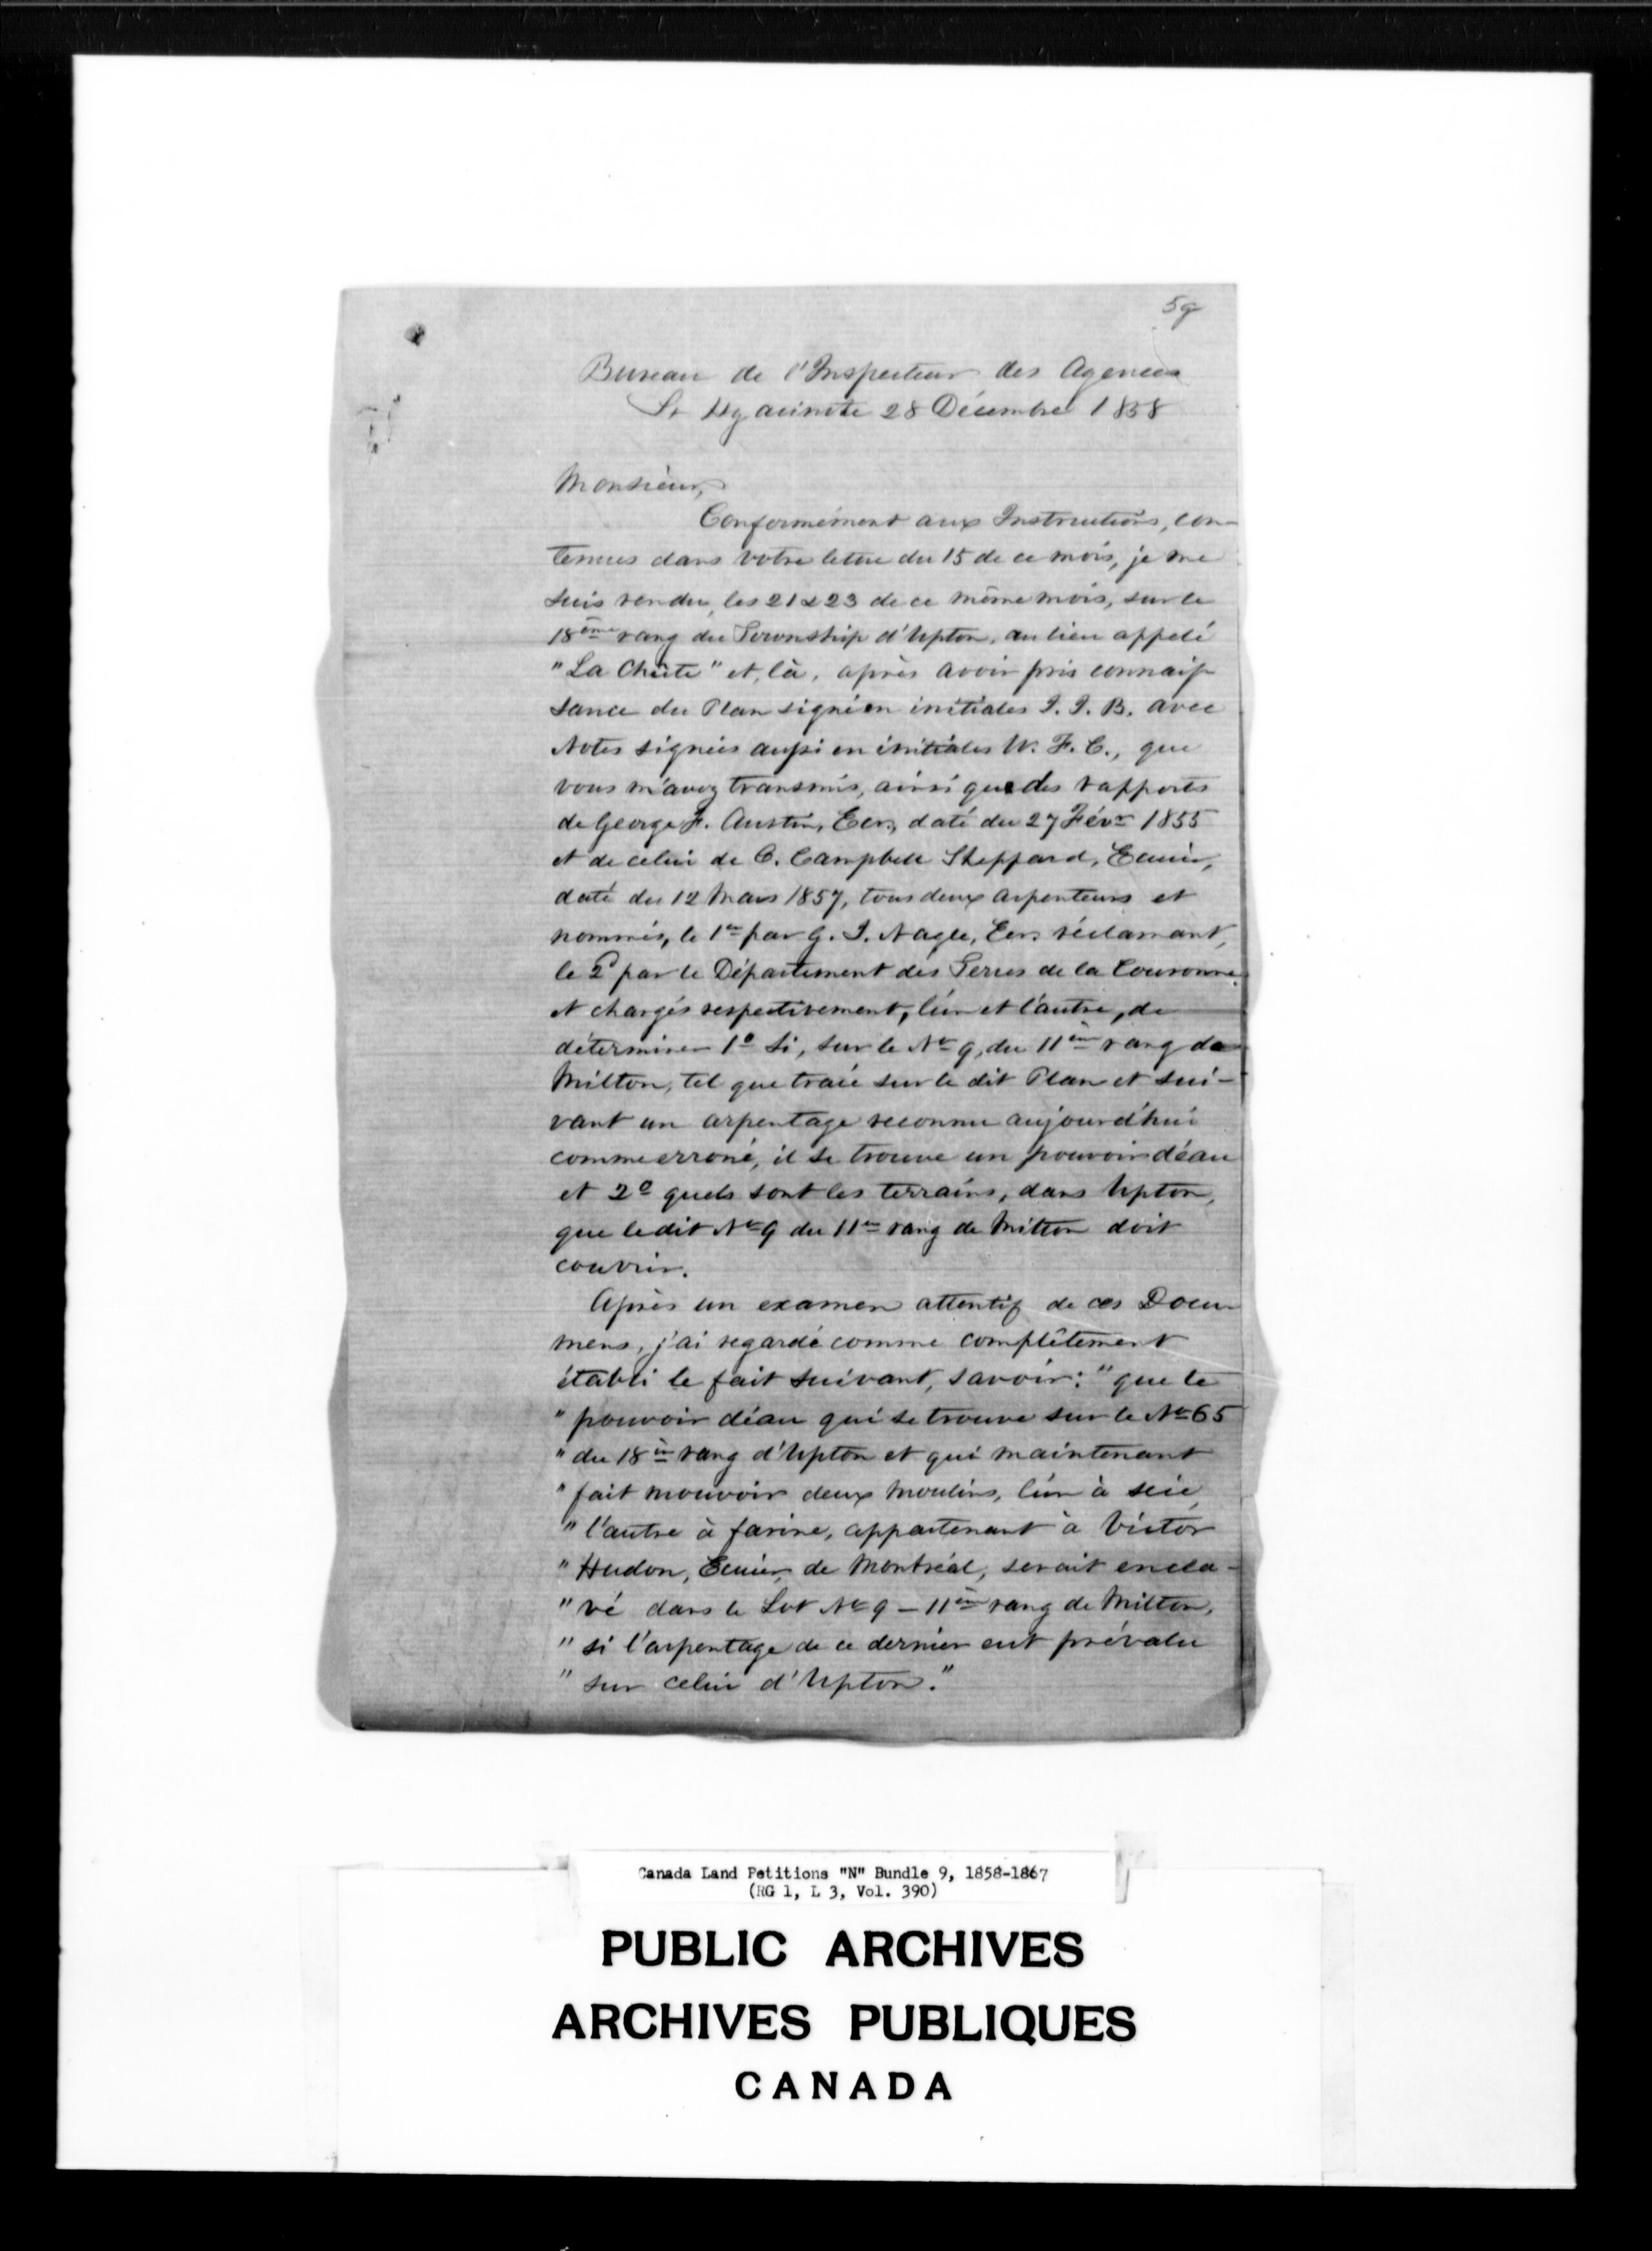 5g
Bureau de l'Inspecteur des Agences
St Hyacinthe 28 Décembre 1858
Monsieur,
Conformément aux Instructions, con-
tenues dans votre lettre du 15 de ce mois, je me
suis rendu, les 21 & 23 de ce même mois, sur le
18ème rang du Township d'Upton, au lieu appelé
"La Chûte" et, là, après avoir pris connais
sance du Plan signé en initiales J. J. B. avec
Notes signées aussi en initiales W. F. C., que
vous m'avez transmis, ainsi que des rapports
de George F. Austin, Ecr., daté du 27 Févr 1855
et de celui de C. Campbell Sheppard, Ecuier,
daté du 12 Mars 1857, tous deux arpenteurs et
nommés, le 1er par G. J. Nagle, Ecr. réclamant,
le 2d par le Département des Terres de la Couronne
et chargés respectivement, l'un et l'autre, de
déterminer 1o Si, sur le No 9, du 11ème rang de
Milton, tel que tracé sur le dit Plan et sui-
vant un arpentage reconnu aujourd'hui
comme erroné, il se trouve un pouvoir d'eau
et 2o quels sont les terrains, dans Upton,
que le dit No 9 du 11ème rang de Milton doit
couvrir.
Après un examen attentif de ces Docu
mens, j'ai regardé comme complêtement
établi le fait suivant, savoir: "que le
" pouvoir d'eau qui se trouve sur le No 65
" du 18ème rang d'Upton et qui maintenant
" fait mouvoir deux moulins, l'un à scie,
" l'autre à farine, appartenant à Victor
" Hudon, Ecuier, de Montréal, serait encla-
" vé dans le Lot No 9 - 11ème rang de Milton,
" si l'arpentage de ce dernier eut prévalu
" sur celui d'Upton."
Canada Land Petitions "N" Bundle 9, 1858-1867
(RG 1, L 3, Vol. 390)
PUBLIC ARCHIVES
ARCHIVES PUBLIQUES
CANADA